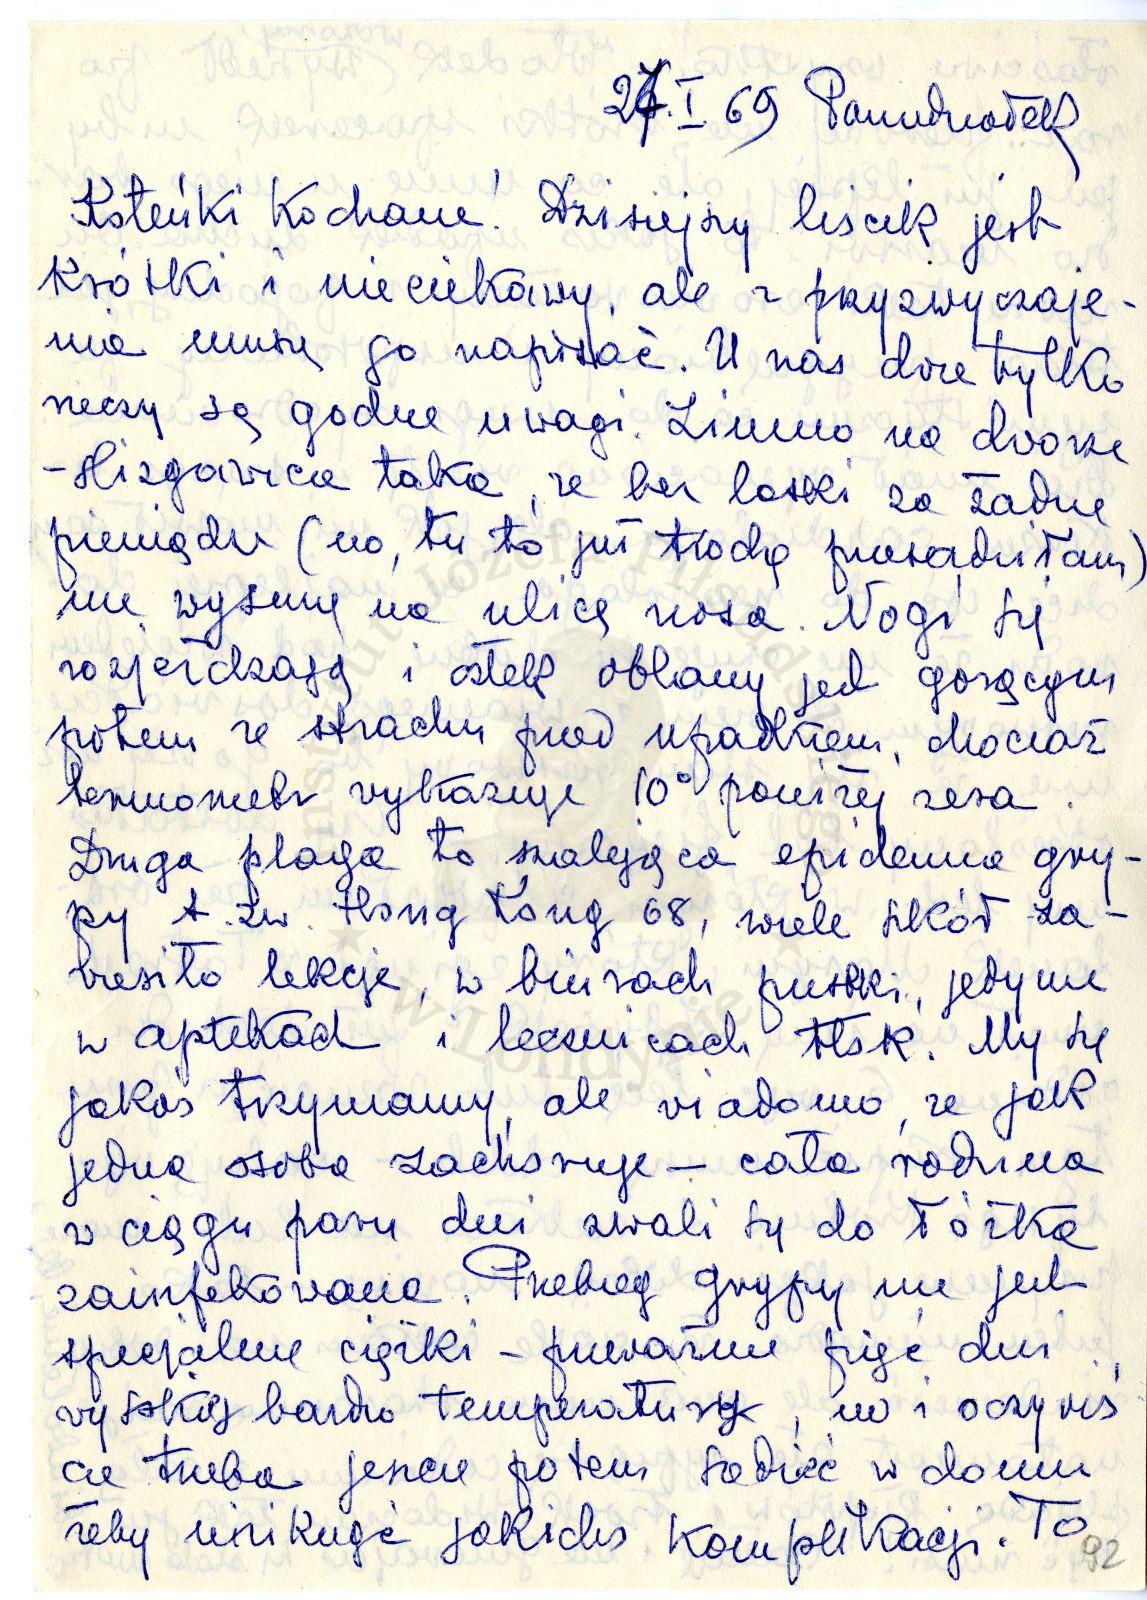 27.I 69 Poniedziałek
Koteńki Kochane! Dzisiejszy liścik jest
krótki i nieciekawy, ale z przyzwyczaje-
nia muszę go napisać. U nas dwie tylko
rzeczy są godne uwagi. Zimno na dworze
– ślizgawica taka, że bez laski za żadne
pieniądze (no, tu to już trochę przesadziłam)
nie wysunę na ulicę nosa. Nogi się
rozjeżdżają i człek oblany jest gorącym
potem ze strachu przed upadkiem, chociaż
termometr wykazuje 10° poniżej zera.
Druga plaga to szalejąca epidemia gry-
py t.zw. Hong Kong 68, wiele szkół za-
wiesiło lekcje, w biurach pustki, jedynie
w aptekach i lecznicach tłok. My się
jakoś trzymamy, ale wiadomo, że jak
jedna osoba zachoruje – cała rodzina
w ciągu paru dni zwali się do łóżka
zainfekowana. Przebieg grypy nie jest
specjalnie ciężki – przeważnie pięć dni
wysokiej bardzo temperatury, no i oczywiś
cie trzeba jeszcze potem siedzieć w domu
żeby uniknąć jakichś komplikacji. To
92
Instytut Józefa Piłsudskiego
w Londynie